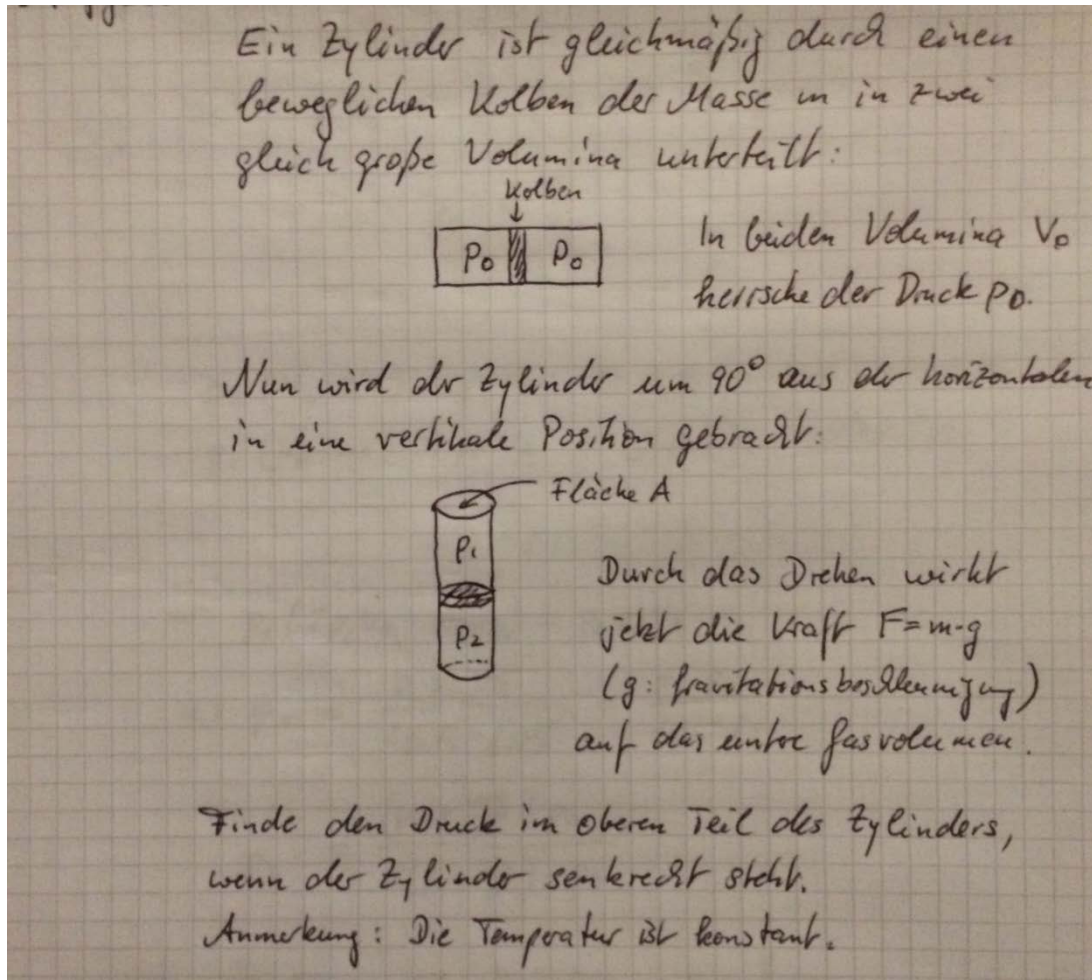 Ein Zylinder ist gleichmäßig durch einen
beweglichen Kolben der Masse m in zwei
gleich große Volumina unterteilt:
Kolben
P₀ P₀
In beiden Volumina V₀
herrsche der Druck p₀.
Nun wird der Zylinder um 90° aus der horizontalen
in eine vertikale Position gebracht:
Fläche A
P₁
P₂
Durch das Drehen wirkt
jetzt die Kraft F=m·g
(g: Gravitationsbeschleunigung)
auf das untere Gasvolumen.
Finde den Druck im oberen Teil des Zylinders,
wenn der Zylinder senkrecht steht.
Anmerkung: Die Temperatur ist konstant.